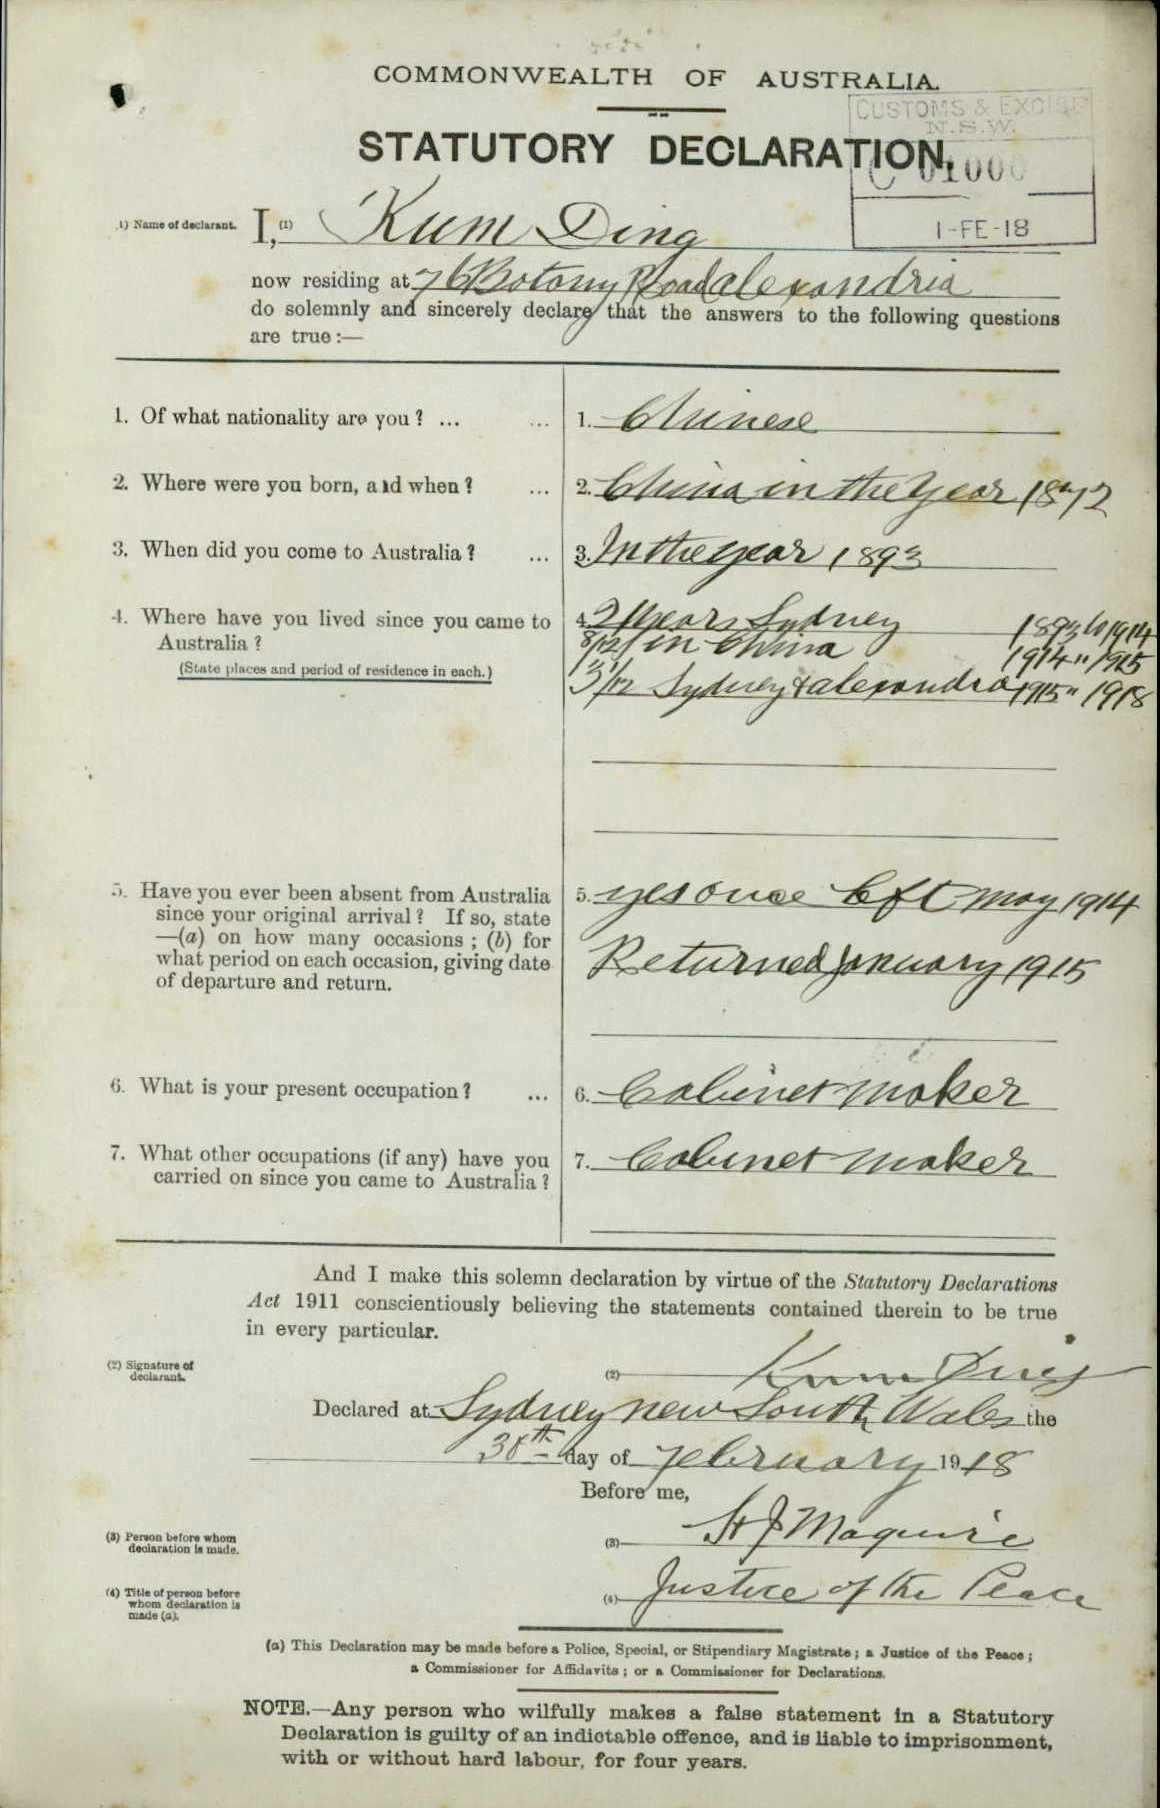 COMMONWEALTH OF AUSTRALIA.
CUSTOMS & EXCISE
N.S.W.
STATUTORY DECLARATION.
C 01000
1-FE-18
1) Name of declarant. I, (1) Kum Ding
now residing at 76 Botany Road alexandria
do solemnly and sincerely declare that the answers to the following questions
are true :—
1. Of what nationality are you ? ... ... 1. Chinese
2. Where were you born, and when ? ... 2. China in the year 1872
3. When did you come to Australia ? ... 3. In the year 1893
4. Where have you lived since you came to 4. 21 years Sydney 1893 to 1914
Australia ? 8/12 in China 1914 " 1915
(State places and period of residence in each.) 3 1/12 Sydney & alexandra 1915 " 1918
5. Have you ever been absent from Australia 5. yes once left may 1914
since your original arrival ? If so, state
—(a) on how many occasions ; (b) for
what period on each occasion, giving date Returned January 1915
of departure and return.
6. What is your present occupation ? ... 6. Cabinet maker
7. What other occupations (if any) have you 7. Cabinet maker
carried on since you came to Australia ?
And I make this solemn declaration by virtue of the Statutory Declarations
Act 1911 conscientiously believing the statements contained therein to be true
in every particular.
(2) Signature of
declarant. (2) Kum Ding
Declared at Sydney new South Wales the
day of February 1918
Before me,
(3) Person before whom
declaration is made. (3) Maguire
(4) Title of person before
whom declaration is
made (a). (4) Justice of the Peace
(a) This Declaration may be made before a Police, Special, or Stipendiary Magistrate ; a Justice of the Peace ;
a Commissioner for Affidavits ; or a Commissioner for Declarations.
NOTE.—Any person who wilfully makes a false statement in a Statutory
Declaration is guilty of an indictable offence, and is liable to imprisonment,
with or without hard labour, for four years.